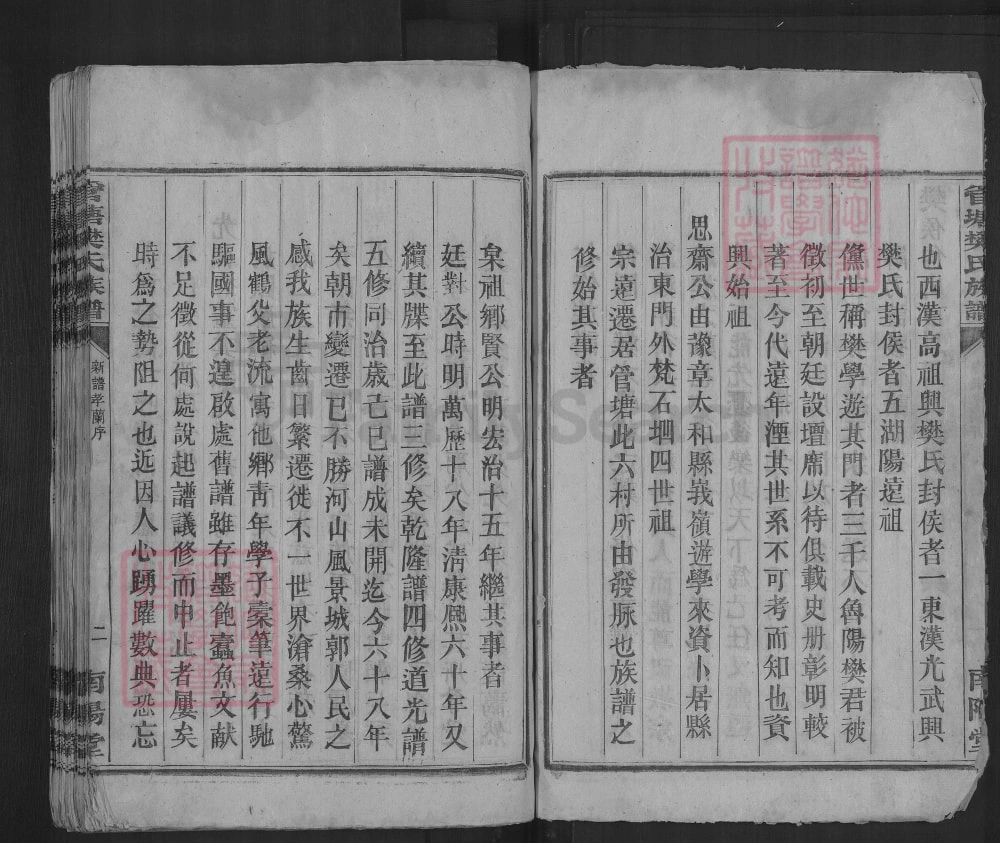 也西漢高祖興樊氏封侯者一東漢光武興
樊氏封侯者五湖陽遠祖
儵世稱樊學遊其門者三千人魯陽樊君被
徵初至朝廷設壇席以待俱載史册彰明較
著至今代遠年湮其世系不可考而知也資
興始祖
思齋公由豫章太和縣峩嶺遊學來資卜居縣
治東門外梵石堋四世祖
宗遠遷居管塘此六村所由發脉也族譜之
修始其事者
臬祖鄉賢公明宏治十五年繼其事者
廷對公時明萬歷十八年淸康熙六十年又
續其牒至此譜三修矣乾隆譜四修道光譜
五修同治歲己巳譜成未開迄今六十八年
矣朝市變遷已不勝河山風景城郭人民之
感我族生齒日繁遷徙不一世界滄桑心驚
風鶴父老流寓他鄉靑年學子橐筆遠行馳
驅國事不遑啟處舊譜雖存墨飽蠹魚文献
不足徵從何處說起譜議修而中止者屢矣
時爲之勢阻之也近因人心踴躍數典恐忘
管塘樊氏族譜
新譜孝蘭序
二
南陽堂